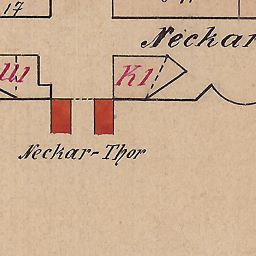 17
Neckar
U1
K1
Neckar-Thor